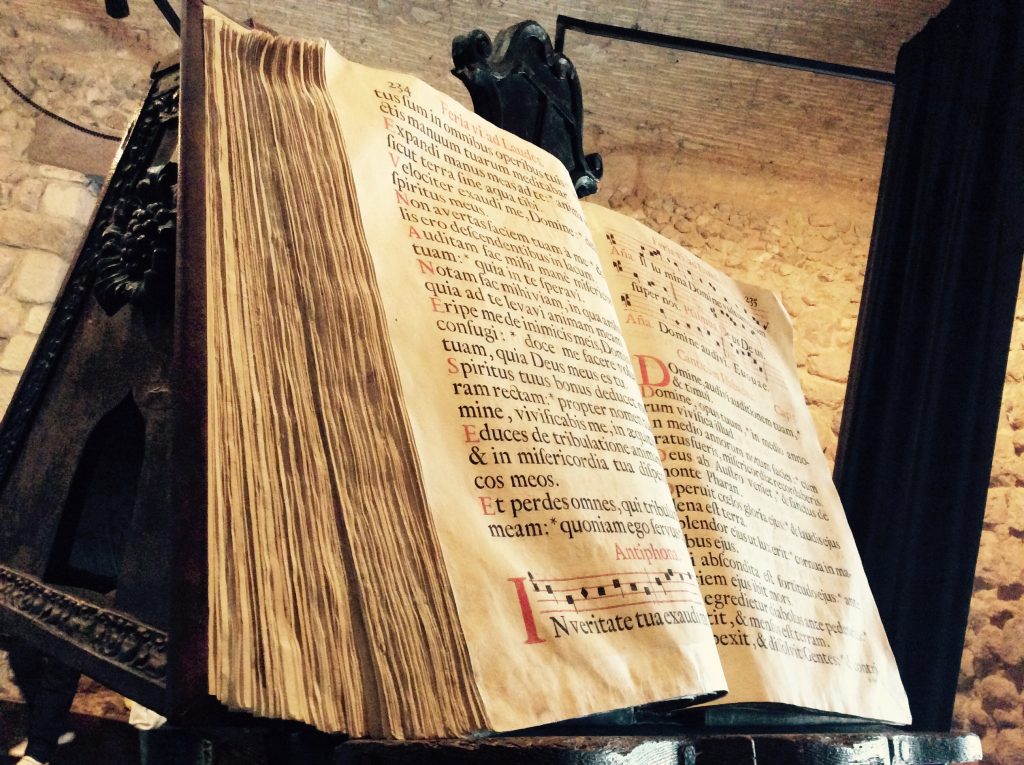 234
Feria vi. ad Laudes.
tus ſum in omnibus operibus tuis
ctis manuum tuarum meditabar.
Expandi manus meas ad te: * anima
ſicut terra ſine aqua tibi.
Velociter exaudi me, Domine: *
ſpiritus meus.
Non avertas faciem tuam a me: *
lis ero deſcendentibus in lacum.
Auditam fac mihi manè miſericor
tuam: * quia in te ſperavi.
Notam fac mihi viam, in qua amb
quia ad te levavi animam meam
Eripe me de inimicis meis, Domi
confugi: * doce me facere volu
tuam, quia Deus meus es tu.
Spiritus tuus bonus deducet
ram rectam: * propter nomen
mine, vivificabis me, in æquit
Educes de tribulatione anima
& in miſericordia tua diſpe
cos meos.
Et perdes omnes, qui tribul
meam: * quoniam ego ſervus
Antiphona.
IN veritate tua exaudi
235
Aña. Illumina Domine
ſuper nos.
Aña. Domine audivi. Euouae
Domine, audivi auditionem tuam, *
& timui.
Domine, opus tuum, * in medio anno-
rum vivifica illud.
In medio annorum notum facies: * cum
iratus fueris, miſericordiæ recordaberis.
Deus ab Auſtro veniet, * & ſanctus de
monte Pharan.
Operuit cœlos gloria ejus: * & laudis ejus
plena eſt terra.
Splendor ejus ut lux erit: * cornua in ma-
ibus ejus.
i abſcondita eſt fortitudo ejus: * ante
iem ejus ibit mors.
egredietur diabolus ante pedes ejus: *
tit, & menſus eſt terram.
pexit, & diſſolvit Gentes: * & contri